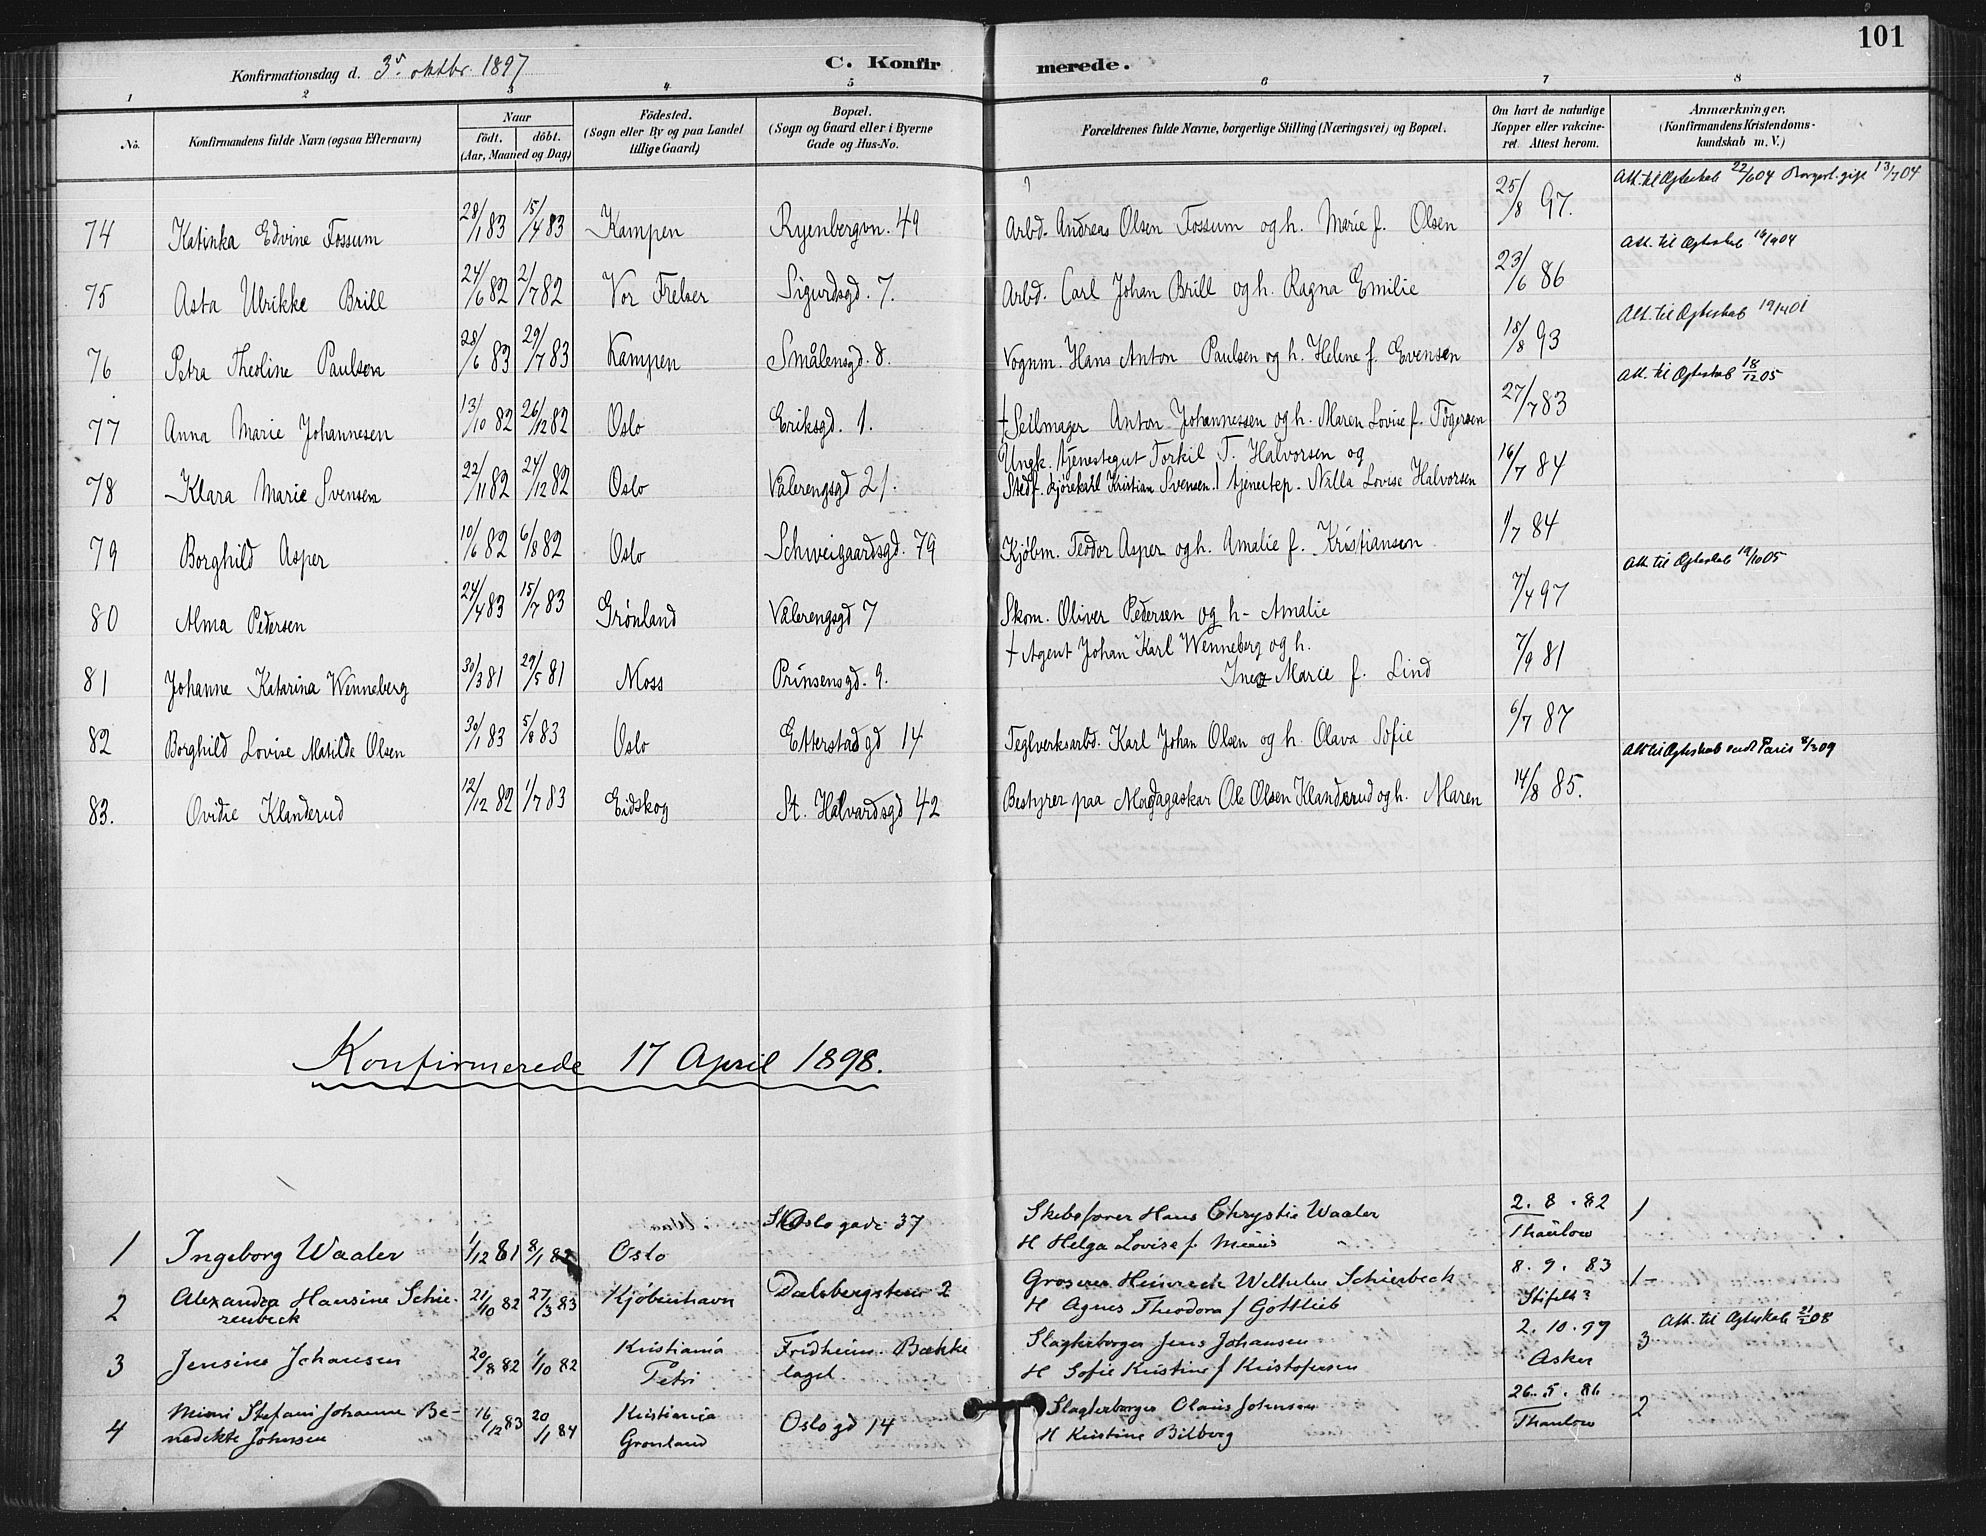 101
Konfirmationsdag d. 3. oktbr. 1897 C. Konfirmerede.
1 2 3 4 5 6 7 8
No. Konfirmandens fulde Navn (ogsaa Efternavn) Naar født. døbt. (Aar, Maaned og Dag) Fødested. (Sogn eller By og paa Landet tillige Gaard) Bopæl. (Sogn og Gaard eller i Byerne Gade og Hus-No. Forældrenes fulde Navne, borgerlige Stilling (Næringsvei) og Bopæl. Om havt de naturlige Kopper eller vakcineret. Attest herom. Anmærkninger, (Konfirmandens Kristendomskundskab m. V.)
74 Katinka Edvine Fossum 28/1 83 15/4 83 Kampen Ryenbergvn. 49 Arbd. Andreas Olsen Fossum og h. Marie f. Olsen 25/8 97. Att. til Ægteskab 22/6 04 Borgerl. gift 13/7 04
75 Asta Ulrikke Brill 24/6 82 2/7 82 Vor Frelser Sigurdsgd. 7. Arbd. Carl Johan Brill og h. Ragna Emilie 23/6 86 Att. til Ægteskab
76 Petra Theoline Paulsen 28/6 83 29/7 83 Kampen Smålensgd. 8. Vognm. Hans Anton Paulsen og h. Helene f. Evensen 18/8 93 Att. til Ægteskab
77 Anna Marie Johannesen 13/10 82 26/12 82 Oslo Eriksgd. 1. † Seilmager Anton Johannessen og h. Maren Lovise f. Tøgersen 27/7 83 Att. til Ægteskab 18/12 05
78 Klara Marie Svensen 22/11 82 24/12 82 Oslo Vålerengsgd 21. Ungk. tjenestegut Torkil T. Halvorsen og
Stedf. kjørekarl Kristian Svensen. tjenestep. Nilla Lovise Halvorsen 16/7 84
79 Borghild Asper 10/6 82 6/8 82 Oslo Schweigaardsgd. 79 Kjøbm. Teodor Asper og h. Amalie f. Kristiansen 1/7 84
80 Alma Pedersen 24/4 83 15/7 83 Grønland Vålerengsgd 7 Skom. Oliver Pedersen og h. Amalie 7/4 97 Att. til Ægteskab 19/10 05
81 Johanne Katarina Wenneberg 30/3 81 29/5 81 Moss Prinsensgd. 9. † Agent Johan Karl Wenneberg og h.
Inez Marie f. Lind 7/9 81
82 Borghild Lovise Matilde Olsen 30/1 83 5/8 83 Oslo Etterstadgd 14 Teglverksarbd. Karl Johan Olsen og h. Olava Sofie 6/7 87
83. Ovidie Klanderud 12/12 82 1/7 83 Eidskog St. Halvardsgd 42 Bestyrer paa Madagaskar Ole Olsen Klanderud og h. Maren 14/8 85. Att til Ægteskab sendt Paris 8/3 09
Konfirmerede 17 April 1898.
1 Ingeborg Waaler 1/12 81 8/1 82 Oslo Oslo gade 37 Skibsfører Hans Chrystie Waaler
H Helga Lovise f. 2. 8. 82 Thaulow 1
2 Alexandra Hansine Schierenbeck 21/10 82 27/3 83 Kjøbenhavn Dalsbergstien 2 Groserer Heinrich Wilhelm Schierbeck
H Agnes Theodora f Gottlieb 8. 9. 83 1
3 Jensine Johansen 20/8 82 1/10 82 Kristiania Petri Fridheim Bækkelaget Slagterborger Jens Johansen
H Sofie Kristine f Kristofersen 2. 10. 97 Asker 3 Att. til Ægteskab 21/2 08
4 Mimi Stefani Johanne Benedikte Johnsen 16/12 83 20/1 84 Kristiania Grønland Oslo gd 14 Slagterborger Olaus Johnsen
H Kristine Bilberg 26. 5. 86 Thaulow 2